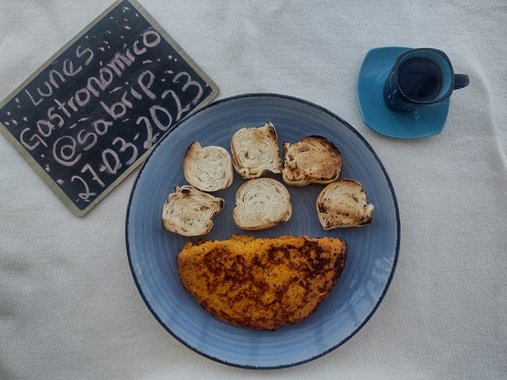 Lunes
Gastronomico
@sabrip
27-03-2023